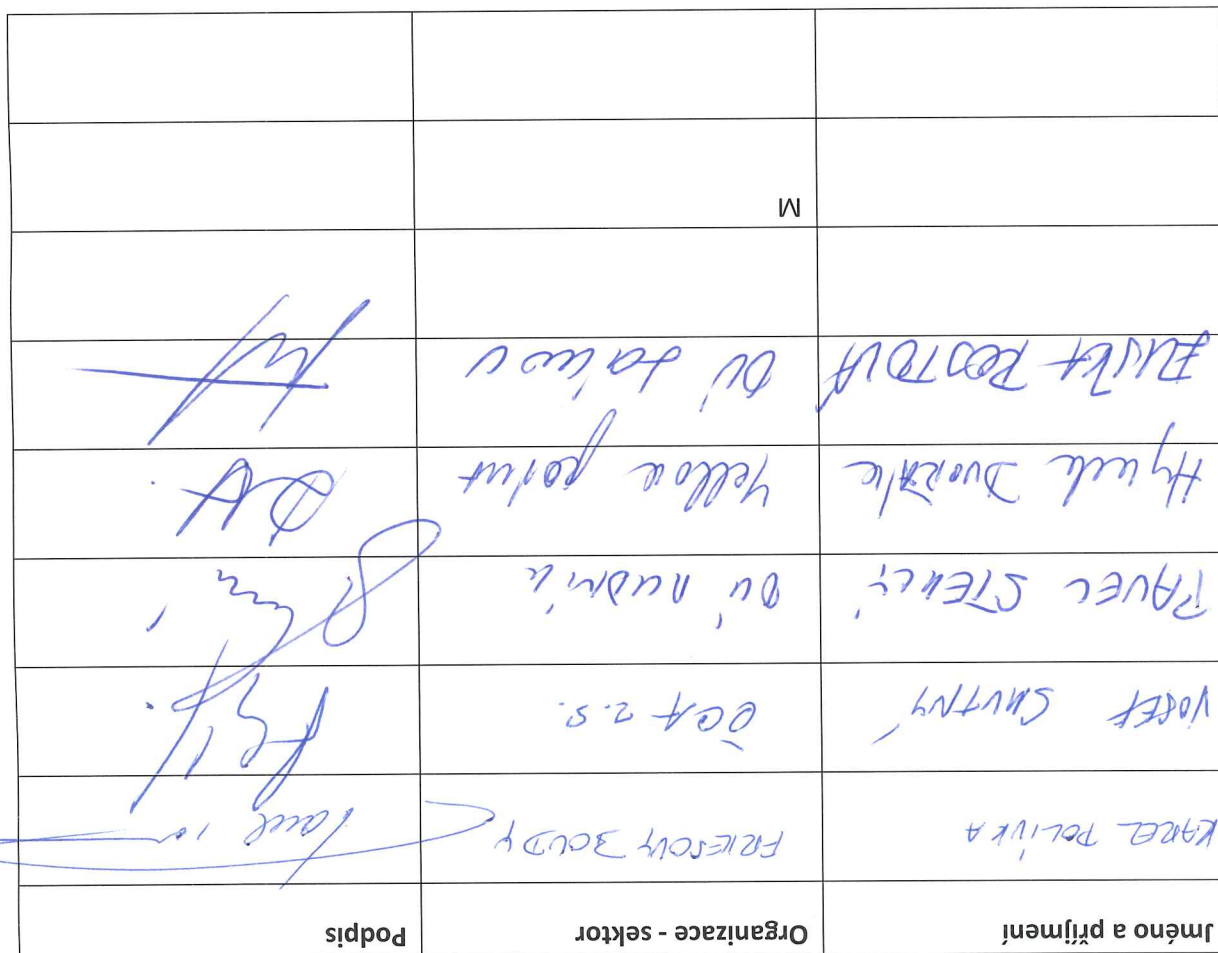 Jméno a příjmení Organizace - sektor Podpis
KAREL POLÍVKA FRIESOVY BOUDY
JOSEF SMUTNÝ ČCA z.s.
PAVEL STEKLÝ OÚ RUDNÍK
Hynek DVOŘÁK Yellow point
ELIŠKA ROSTOVÁ OÚ Lánov
M